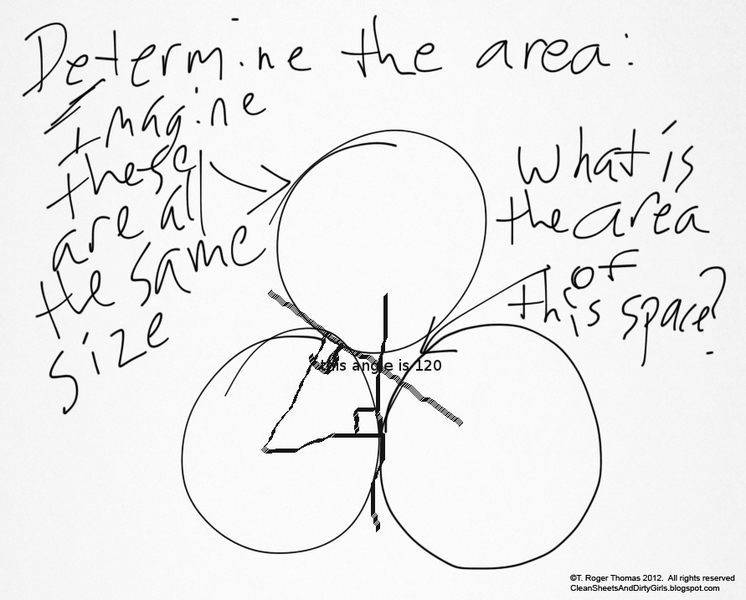 Determine the area:
Imagine
these
are all
the same
size
What is
the area
of
this space?
this angle is 120
©T. Roger Thomas 2012. All rights reserved
CleanSheetsAndDirtyGirls.blogspot.com